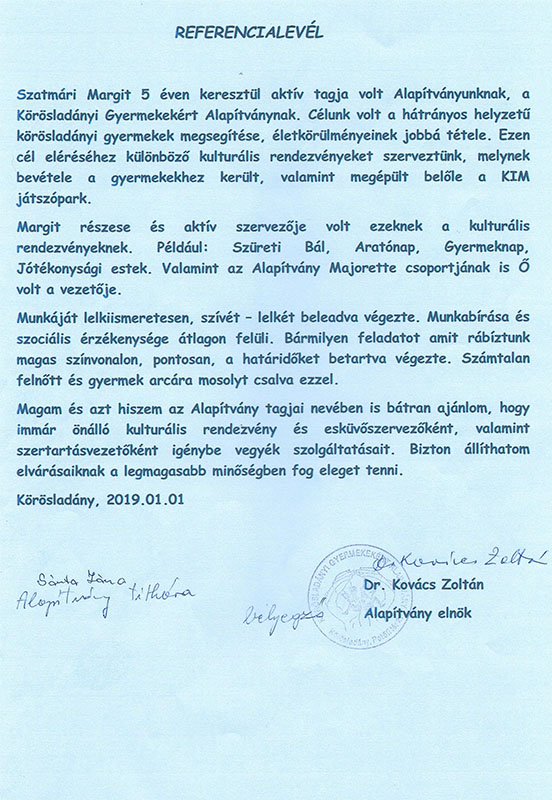 REFERENCIALEVÉL
Szatmári Margit 5 éven keresztül aktív tagja volt Alapítványunknak, a
Körösladányi Gyermekekért Alapítványnak. Célunk volt a hátrányos helyzetű
körösladányi gyermekek megsegítése, életkörülményeinek jobbá tétele. Ezen
cél eléréséhez különböző kulturális rendezvényeket szerveztünk, melynek
bevétele a gyermekekhez került, valamint megépült belőle a KIM
játszópark.
Margit részese és aktív szervezője volt ezeknek a kulturális
rendezvényeknek. Például: Szüreti Bál, Aratónap, Gyermeknap,
Jótékonysági estek. Valamint az Alapítvány Majorette csoportjának is Ő
volt a vezetője.
Munkáját lelkiismeretesen, szívét – lelkét beleadva végezte. Munkabírása és
szociális érzékenysége átlagon felüli. Bármilyen feladatot amit rábíztunk
magas színvonalon, pontosan, a határidőket betartva végezte. Számtalan
felnőtt és gyermek arcára mosolyt csalva ezzel.
Magam és azt hiszem az Alapítvány tagjai nevében is bátran ajánlom, hogy
immár önálló kulturális rendezvény és esküvőszervezőként, valamint
szertartásvezetőként igénybe vegyék szolgáltatásait. Bizton állíthatom
elvárásaiknak a legmagasabb minőségben fog eleget tenni.
Körösladány, 2019.01.01
Dr Kovács Zoltán
Sánta
Alapítvány titkára
Dr. Kovács Zoltán
bélyegző
Alapítvány elnök